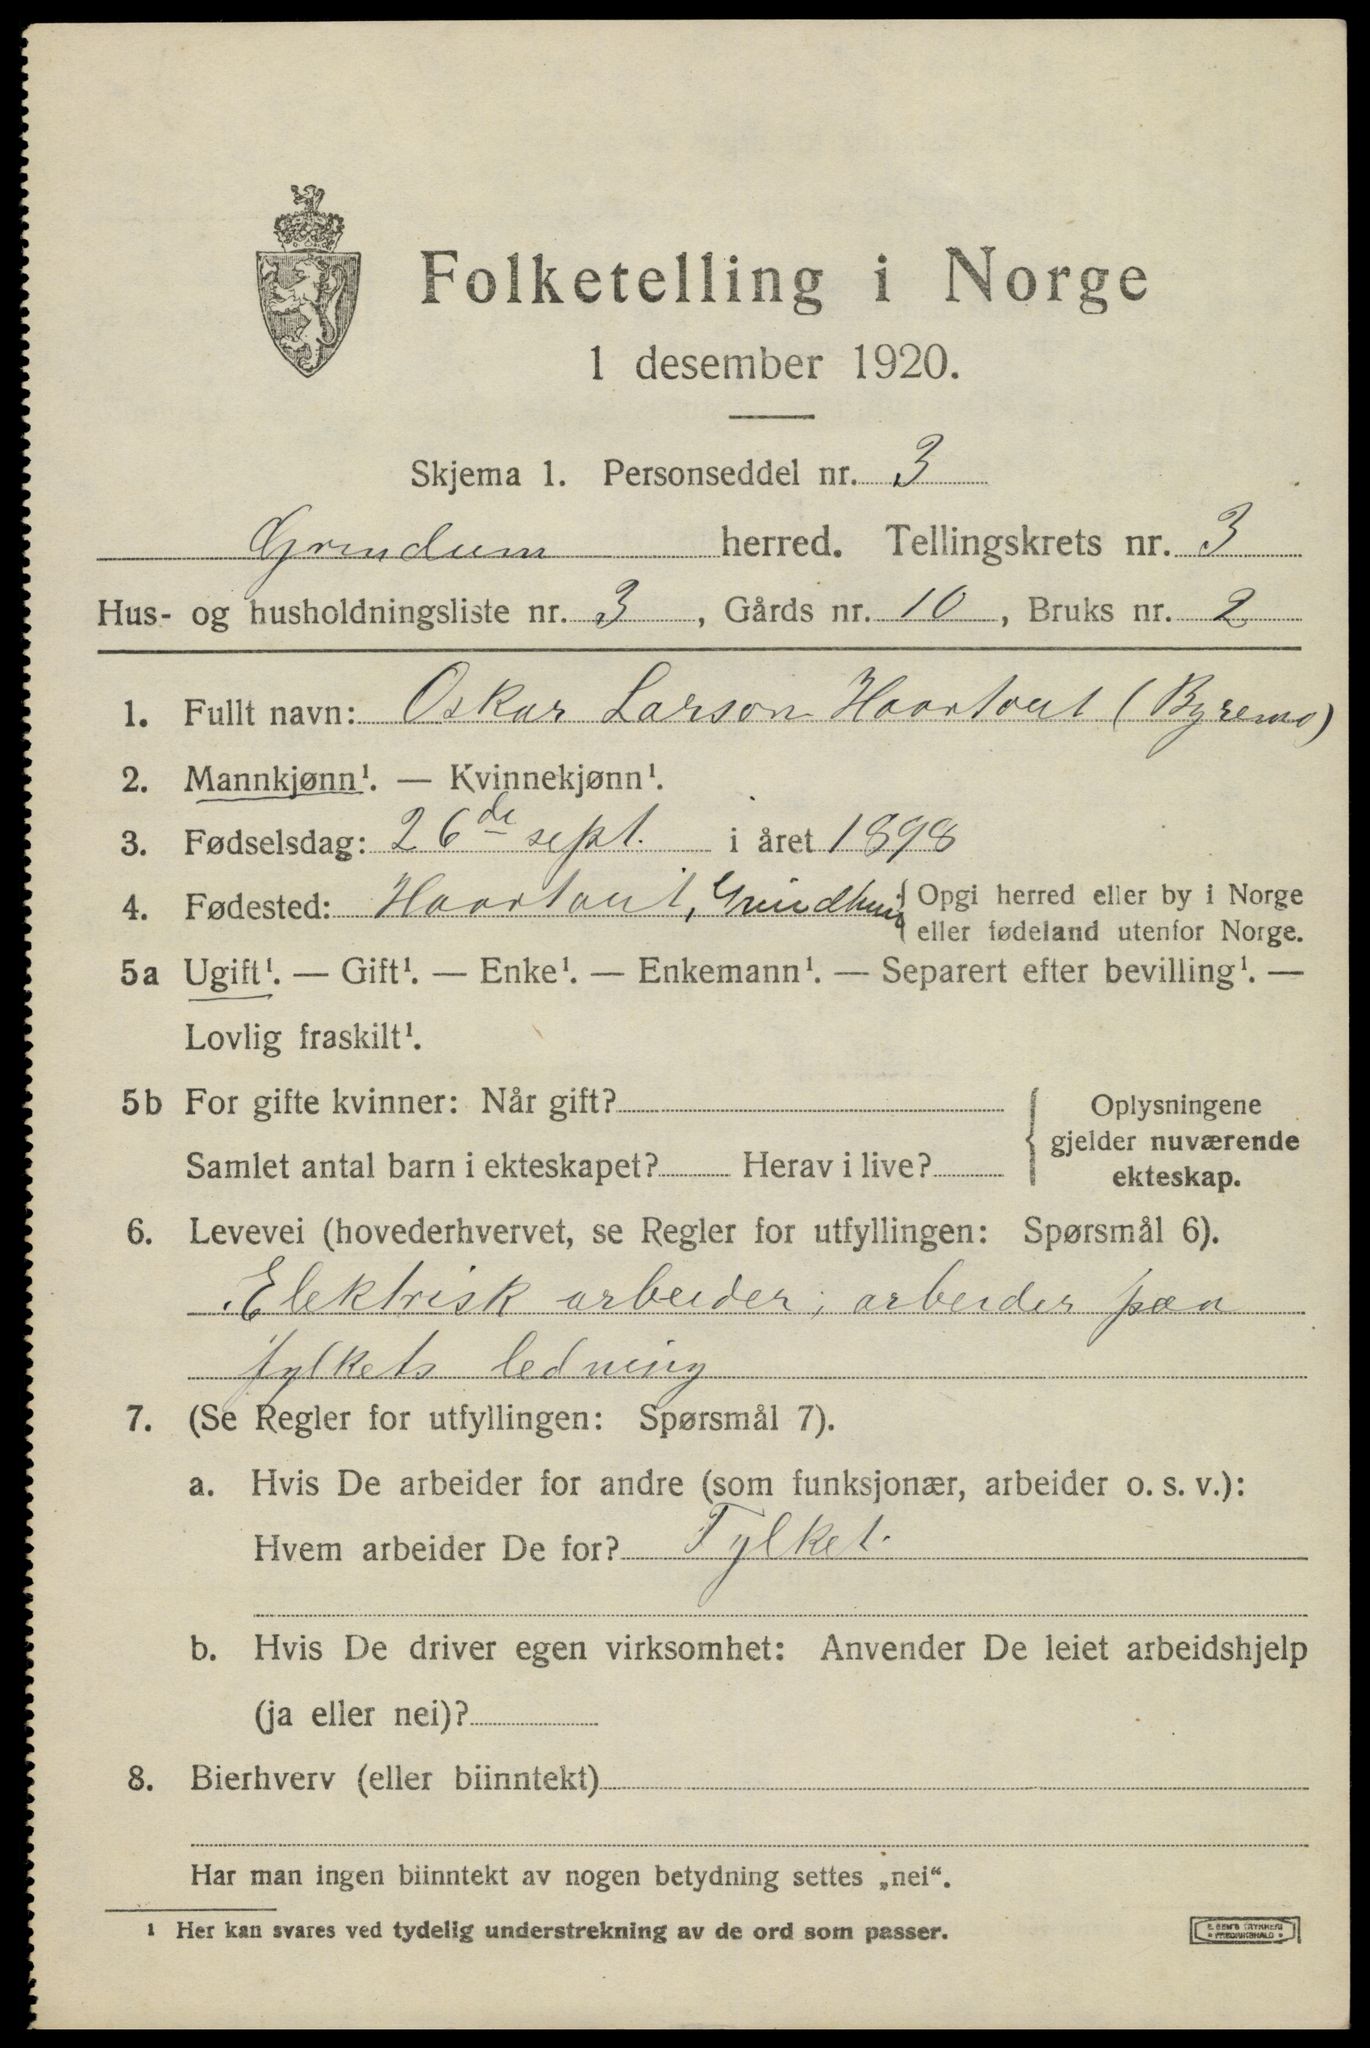 Folketelling i Norge
1 desember 1920.
Skjema 1. Personseddel nr. 3
Grindum herred. Tellingskrets nr. 3
Hus- og husholdningsliste nr. 3, Gårds nr. 10, Bruks nr. 2
1. Fullt navn: Oskar Larson Haartout (Byremo)
2. Mannkjønn¹. — Kvinnekjønn¹.
3. Fødselsdag: 26de sept. i året 1898
4. Fødested: Haartout, Grindhum { Opgi herred eller by i Norge
eller fødeland utenfor Norge.
5a Ugift¹. — Gift¹. — Enke¹. — Enkemann¹. — Separert efter bevilling¹. —
Lovlig fraskilt¹.
5b For gifte kvinner: Når gift?
Samlet antal barn i ekteskapet? Herav i live?
Oplysningene
gjelder nuværende
ekteskap.
6. Levevei (hovederhvervet, se Regler for utfyllingen: Spørsmål 6).
Elektrisk arbeider, arbeider paa
fylkets ledning
7. (Se Regler for utfyllingen: Spørsmål 7).
a. Hvis De arbeider for andre (som funksjonær, arbeider o. s. v.):
Hvem arbeider De for? Fylket.
b. Hvis De driver egen virksomhet: Anvender De leiet arbeidshjelp
(ja eller nei)?
8. Bierhverv (eller biinntekt)
Har man ingen biinntekt av nogen betydning settes „nei“.
¹ Her kan svares ved tydelig understrekning av de ord som passer.